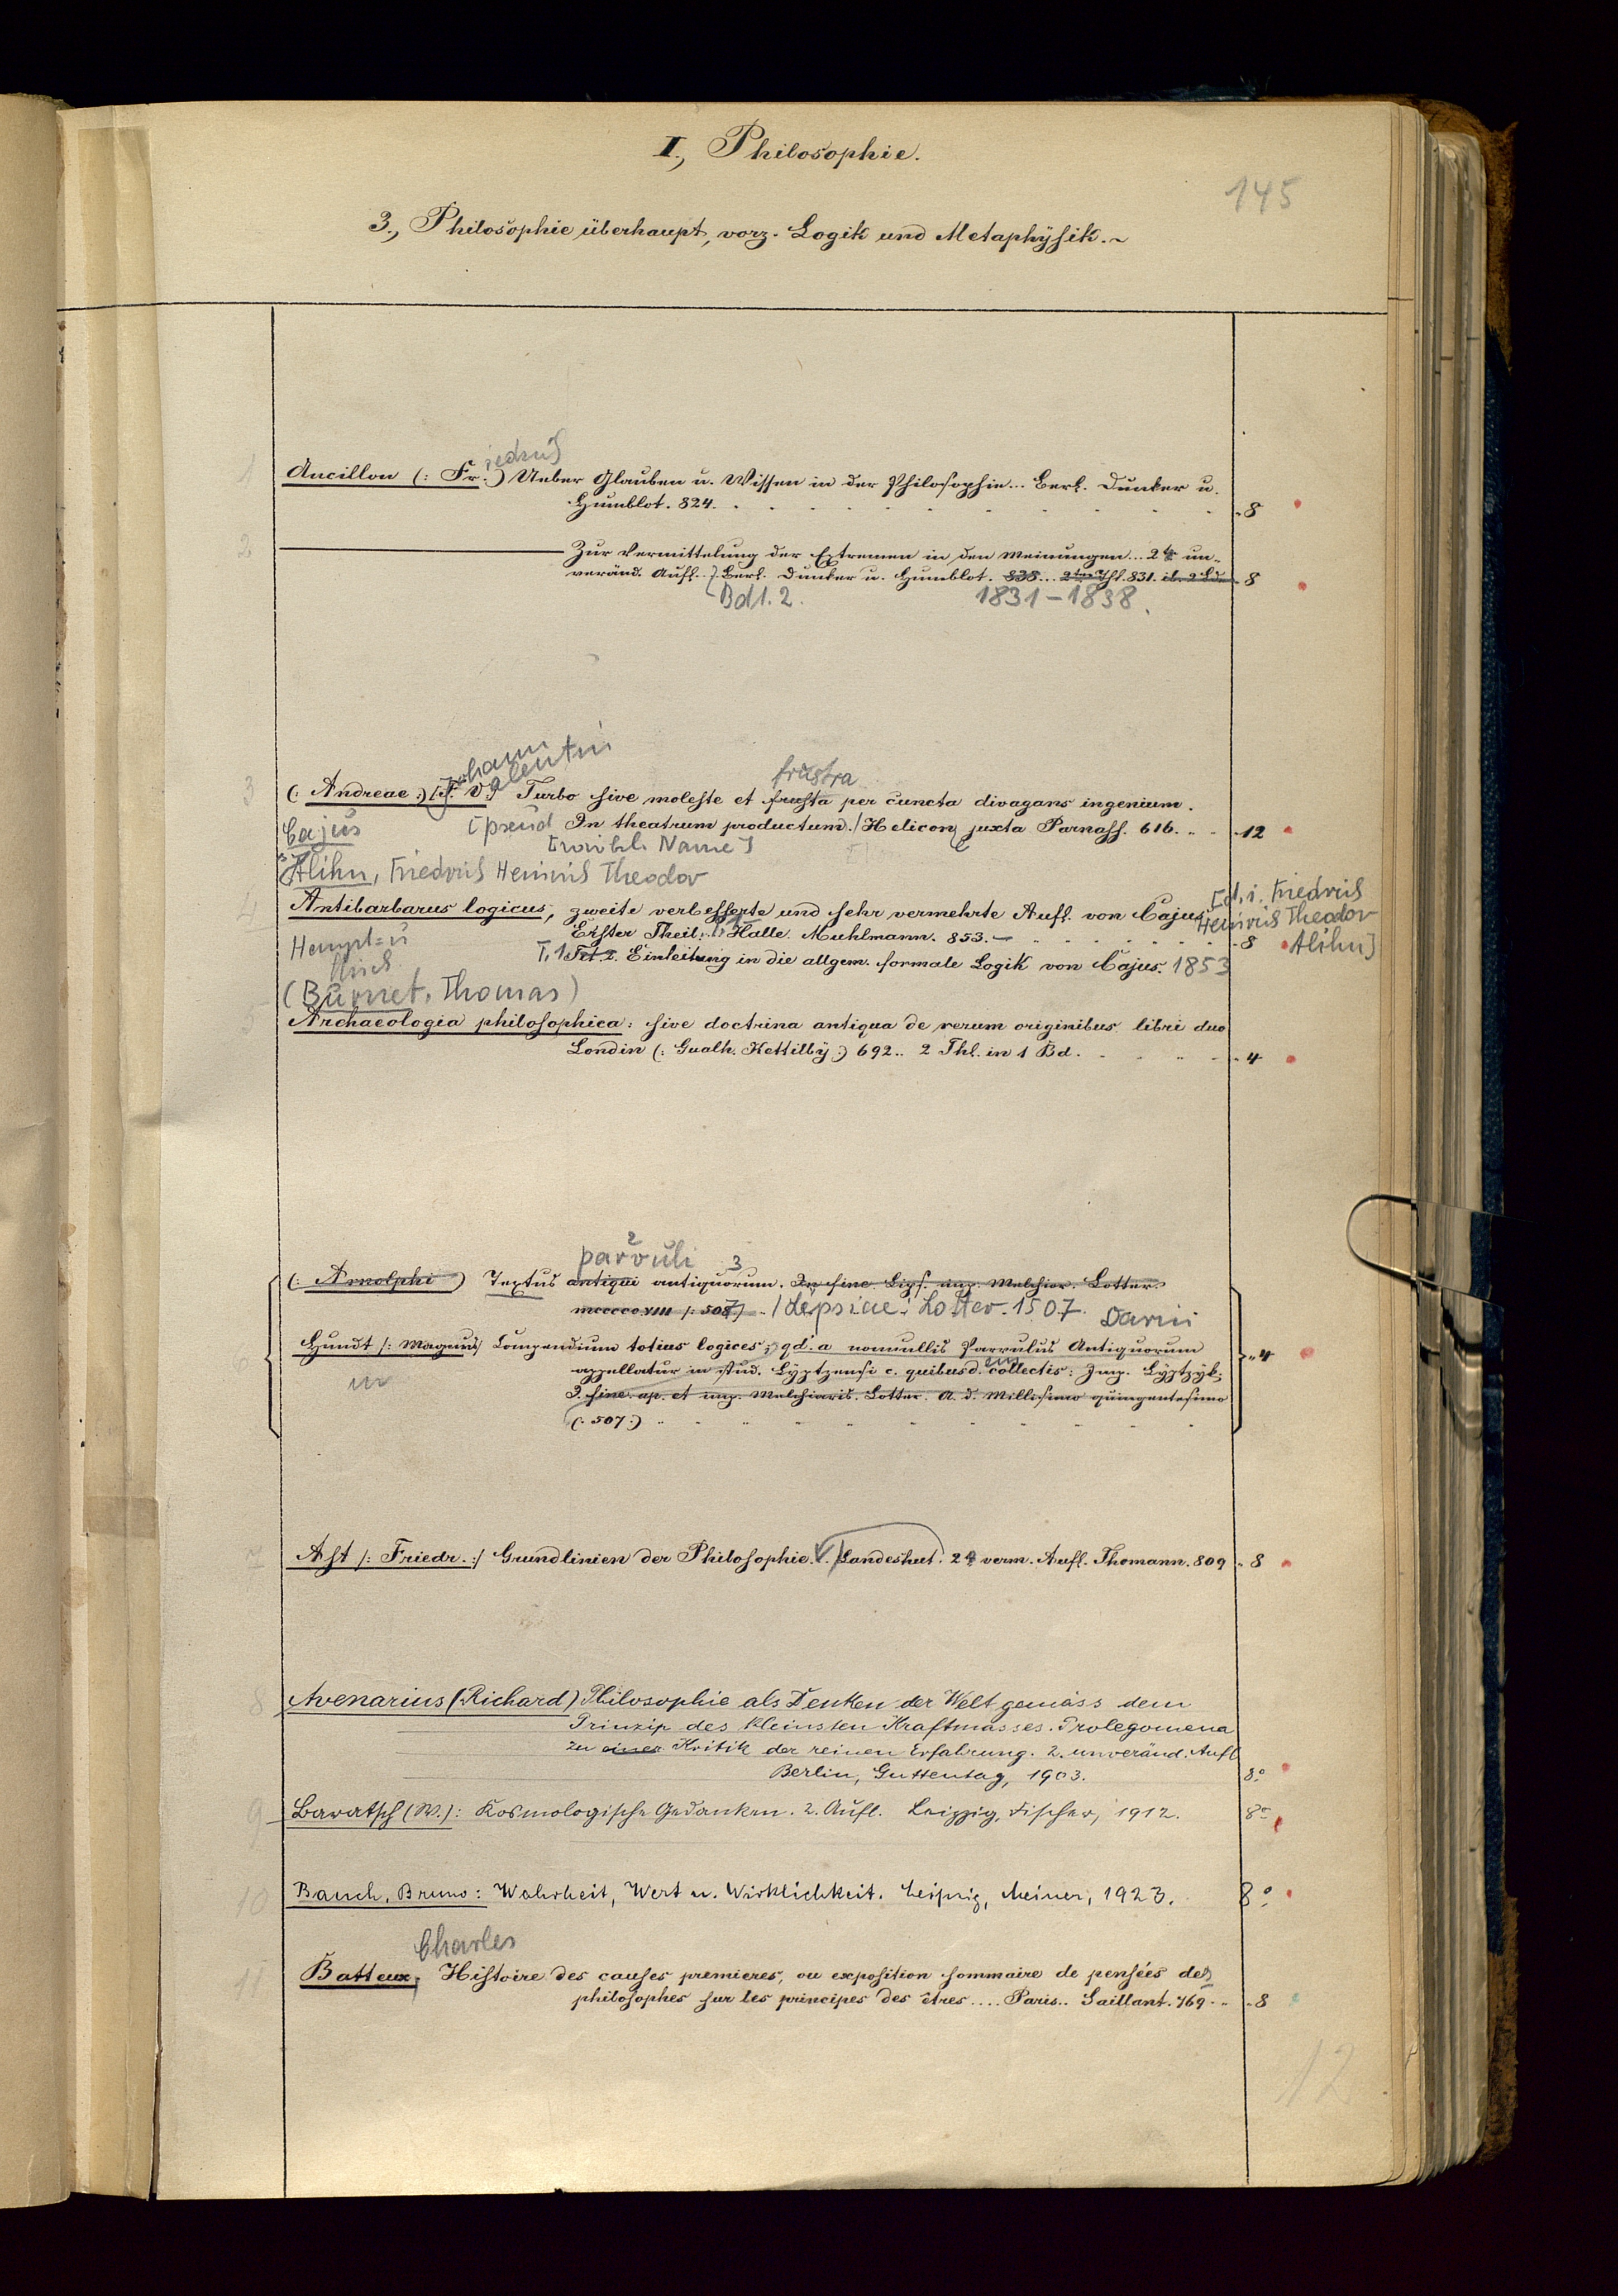 I., Philosophie.
145
3., Philosophie überhaupt, vorz. Logik und Metaphÿsik.~
iedrich
1 Ancillon (: Fr. :) Ueber Glauben u. Wissen in der Philosophie... Berl. Dunker u.
Humblot. 824. 8
2 Zur Vermittelung der Extremen in den Meinungen... 2te un-
veränd. Aufl. .. Berl. Dunker u. Humblot. 838... 2ter Thl. 831. 8
Bd 1. 2. 1831-1838.
Johann
Valentin
frustra
3 (: Andreae :) [J. V.] Turbo sive moleste et frusta per cuncta divagans ingenium.
Cajus [pseud In theatrum productum./Helicon, juxta Parnass. 616. 12
[wirkl. Name]
Allihn, Friedrich Heinrich Theodor
[d. i. Friedrich
4 Antibarbarus logicus, zweite verbesserte und sehr vermehrte Aufl. von Cajus.
Heinrich Theodor
Erster Theil: Halle. Muhlmann. 853. 8
Allihn]
Haupt=u
T. 1 Einleitung in die allgem. formale Logik von Cajus. 1853
(Burnet, Thomas)
5 Archaeologia philosophica: sive doctrina antiqua de rerum originibus libri duo
Londin (: Gualh. Kettilbÿ :) 692.. 2 Thl. in 1 Bd. 4
2
parvuli 3
(: Arnolphi ) Textus antiqui antiquorum. In fine Lips. imp. Melchior. Lotter.
mccccc VIII /: 507 /Lepsiae: Lotter. 1507.
6 Hundt /: Magnus/ Compendium totius logices, qd. a nonnullis Parvulus Antiquorum
appellatur in stud. Lÿptzensi c. quibusd. collectis: Imp. Lÿptzÿk; 4
I. fine. ap. et imp. Melchiaris. Lotter. a. d. Millesimo quingentesimo
(: 507 :)
7 Ast /: Friedr. :/ Grundlinien der Philosophie. /Landeshut. 2te verm. Aufl. Thomann. 809 8
8 Avenarius (Richard) Philosophie als Denken der Welt gemäss dem
Prinzip des kleinsten Kraftmasses. Prolegomena
zu einer Kritik der reinen Erfahrung. 2. unveränd. Aufl
Berlin, Guttentag, 1903. 8°
9 Bawatsch (W.): Kosmologische Gedanken. 2. Aufl. Leipzig, Fischer, 1912. 8°
10 Bauch, Bruno: Wahrheit, Wert u. Wirklichkeit. Leipzig, Meiner, 1923. 8°
Charles
11 Batteux, Histoire des causes premieres, ou exposition sommaire de pensées des
philosophes sur les principes des êtres.... Paris.. Saillant. 769. 8
12